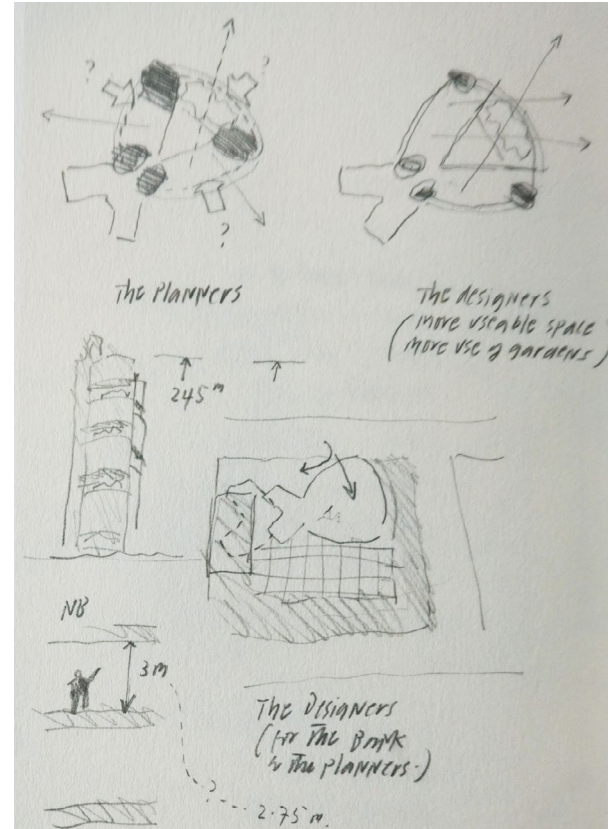 ?
?
?
The Planners
The designers
(more useable space
more use of gardens)
245 m
NB
3 m
The Designers
(for the Bank
& the planners.)
?
2.75 m.